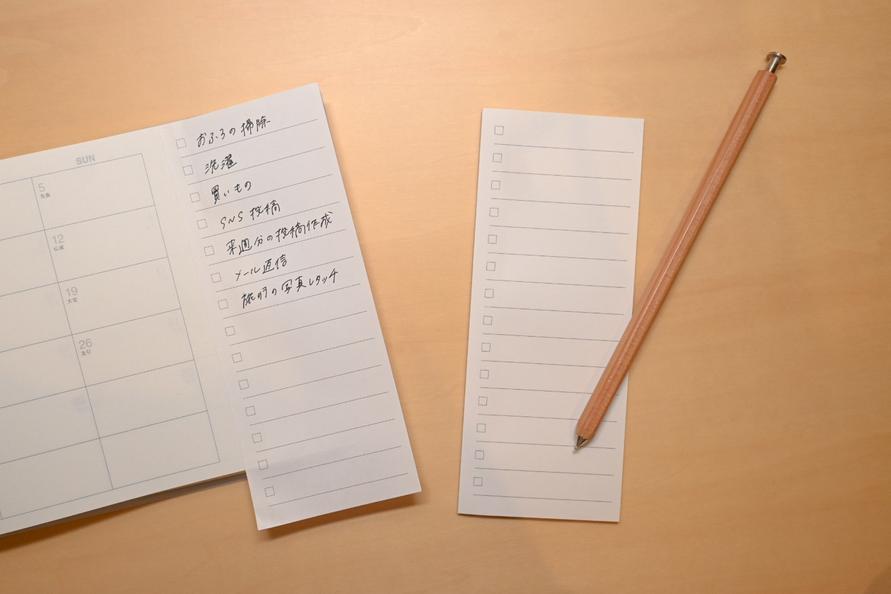 SUN
5
先負
12
仏滅
19
大安
26
おふろの掃除
洗濯
買いもの
SNS投稿
来週分の投稿作成
メール返信
旅の写真レタッチ